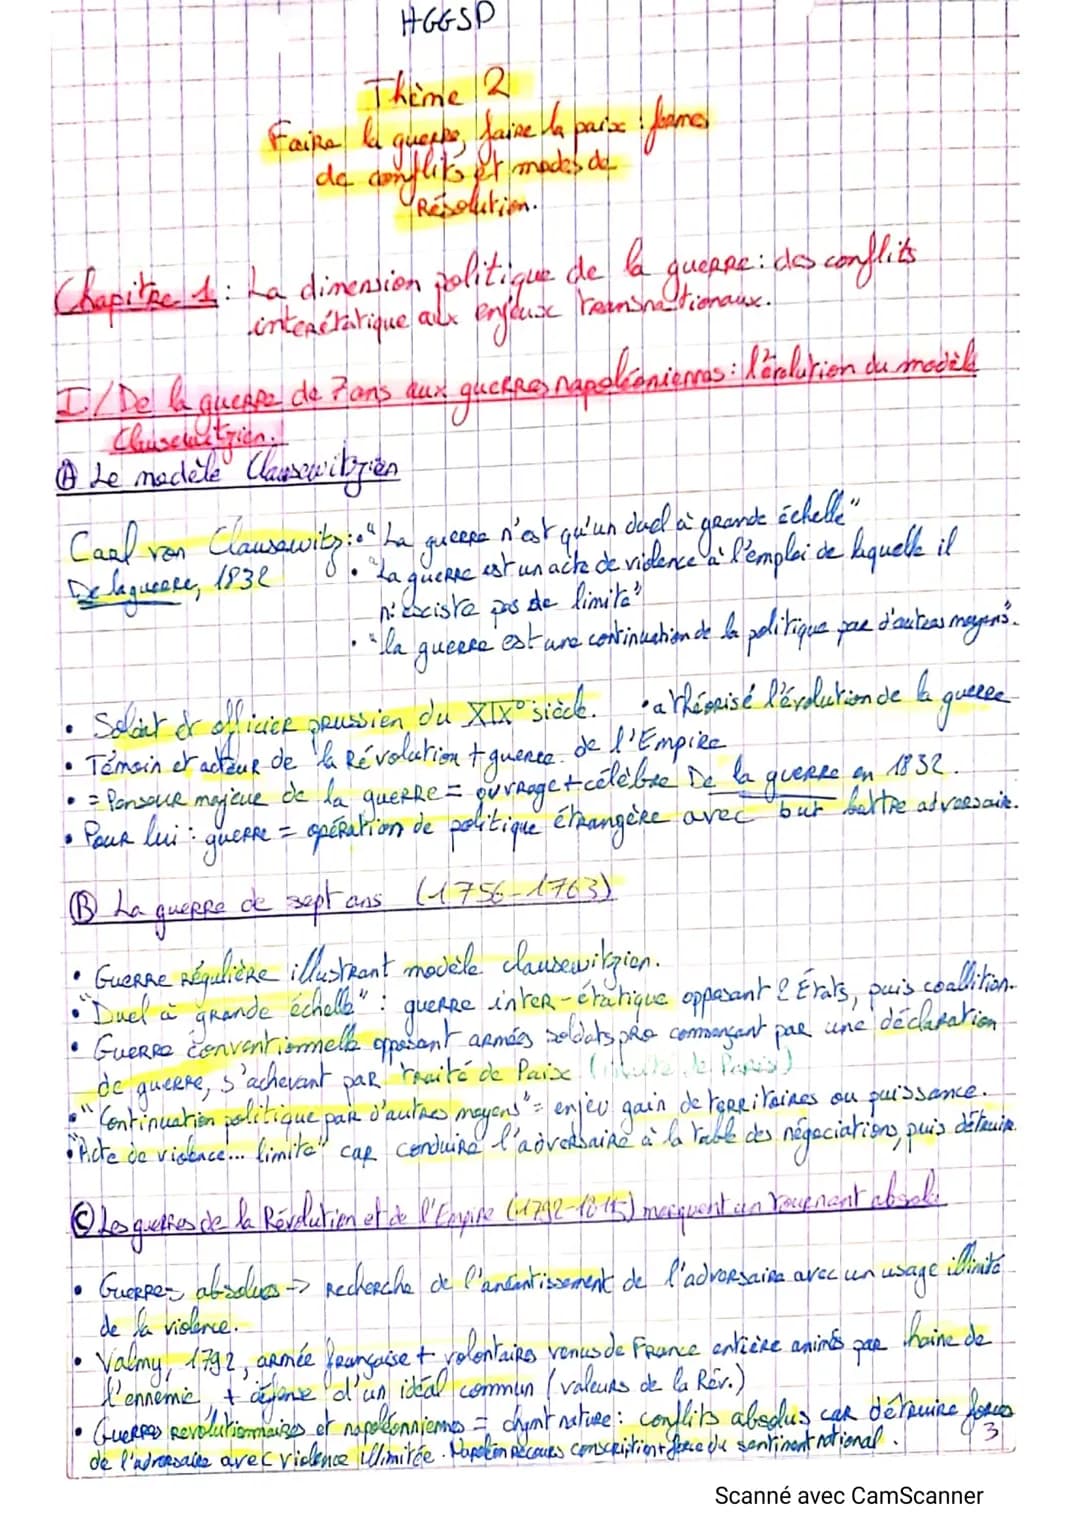 HGGSP
Thème 2
Faire la guerre, faire la paix : formes
de conflits et modes de
Résolution.
Chapitre 1 : La dimension politique de la guerre : des conflits
interétatique aux enjeux transnationaux.
I/ De la guerre de 7 ans aux guerres napoléoniennes : l'évolution du modèle
Clausewitzien.
Ⓐ Le modèle Clausewitzien
Carl von Clausewitz : • "La guerre n'est qu'un duel à grande échelle"
De la guerre, 1832 • "La guerre est un acte de violence à l'emploi de laquelle il
n'existe pas de limite"
• "la guerre est une continuation de la politique par d'autres moyens".
• Soldat et officier prussien du XIX° siècle. • a théorisé l'évolution de la guerre
• Témoin et acteur de la Révolution + guerre de l'Empire
• = Penseur majeur de la guerre = ouvrage + célèbre De la guerre en 1832.
• Pour lui : guerre = opération de politique étrangère avec but battre adversaire.
Ⓑ La guerre de sept ans (1756-1763)
• Guerre régulière illustrant modèle clausewitzien.
• "Duel à grande échelle" : guerre inter-étatique opposant 2 États, puis coallition.
• Guerre conventionnelle opposant armées soldats pro commençant par une déclaration
de guerre, s'achevant par traité de Paix (traité de Paris)
• "Continuation politique par d'autres moyens" = enjeu gain de territoires ou puissance.
• "Acte de violence... limite" car conduire l'adversaire à la table des négociations, puis détruire.
Ⓒ Les guerres de la Révolution et de l'Empire (1792-1815) marquent un tournant absolu
• Guerres absolues -> recherche de l'anéantissement de l'adversaire avec un usage illimité
de la violence.
• Valmy, 1792, armée française + volontaires venus de France entière animés par haine de
l'ennemie + défense d'un idéal commun (valeurs de la Rév.)
• Guerres révolutionnaires et napoléonniennes = chgmt nature : conflits absolus car détruire forces
de l'adversaire avec violence illimitée. Napoléon recours conscription + force du sentiment national.
3
Scanné avec CamScanner